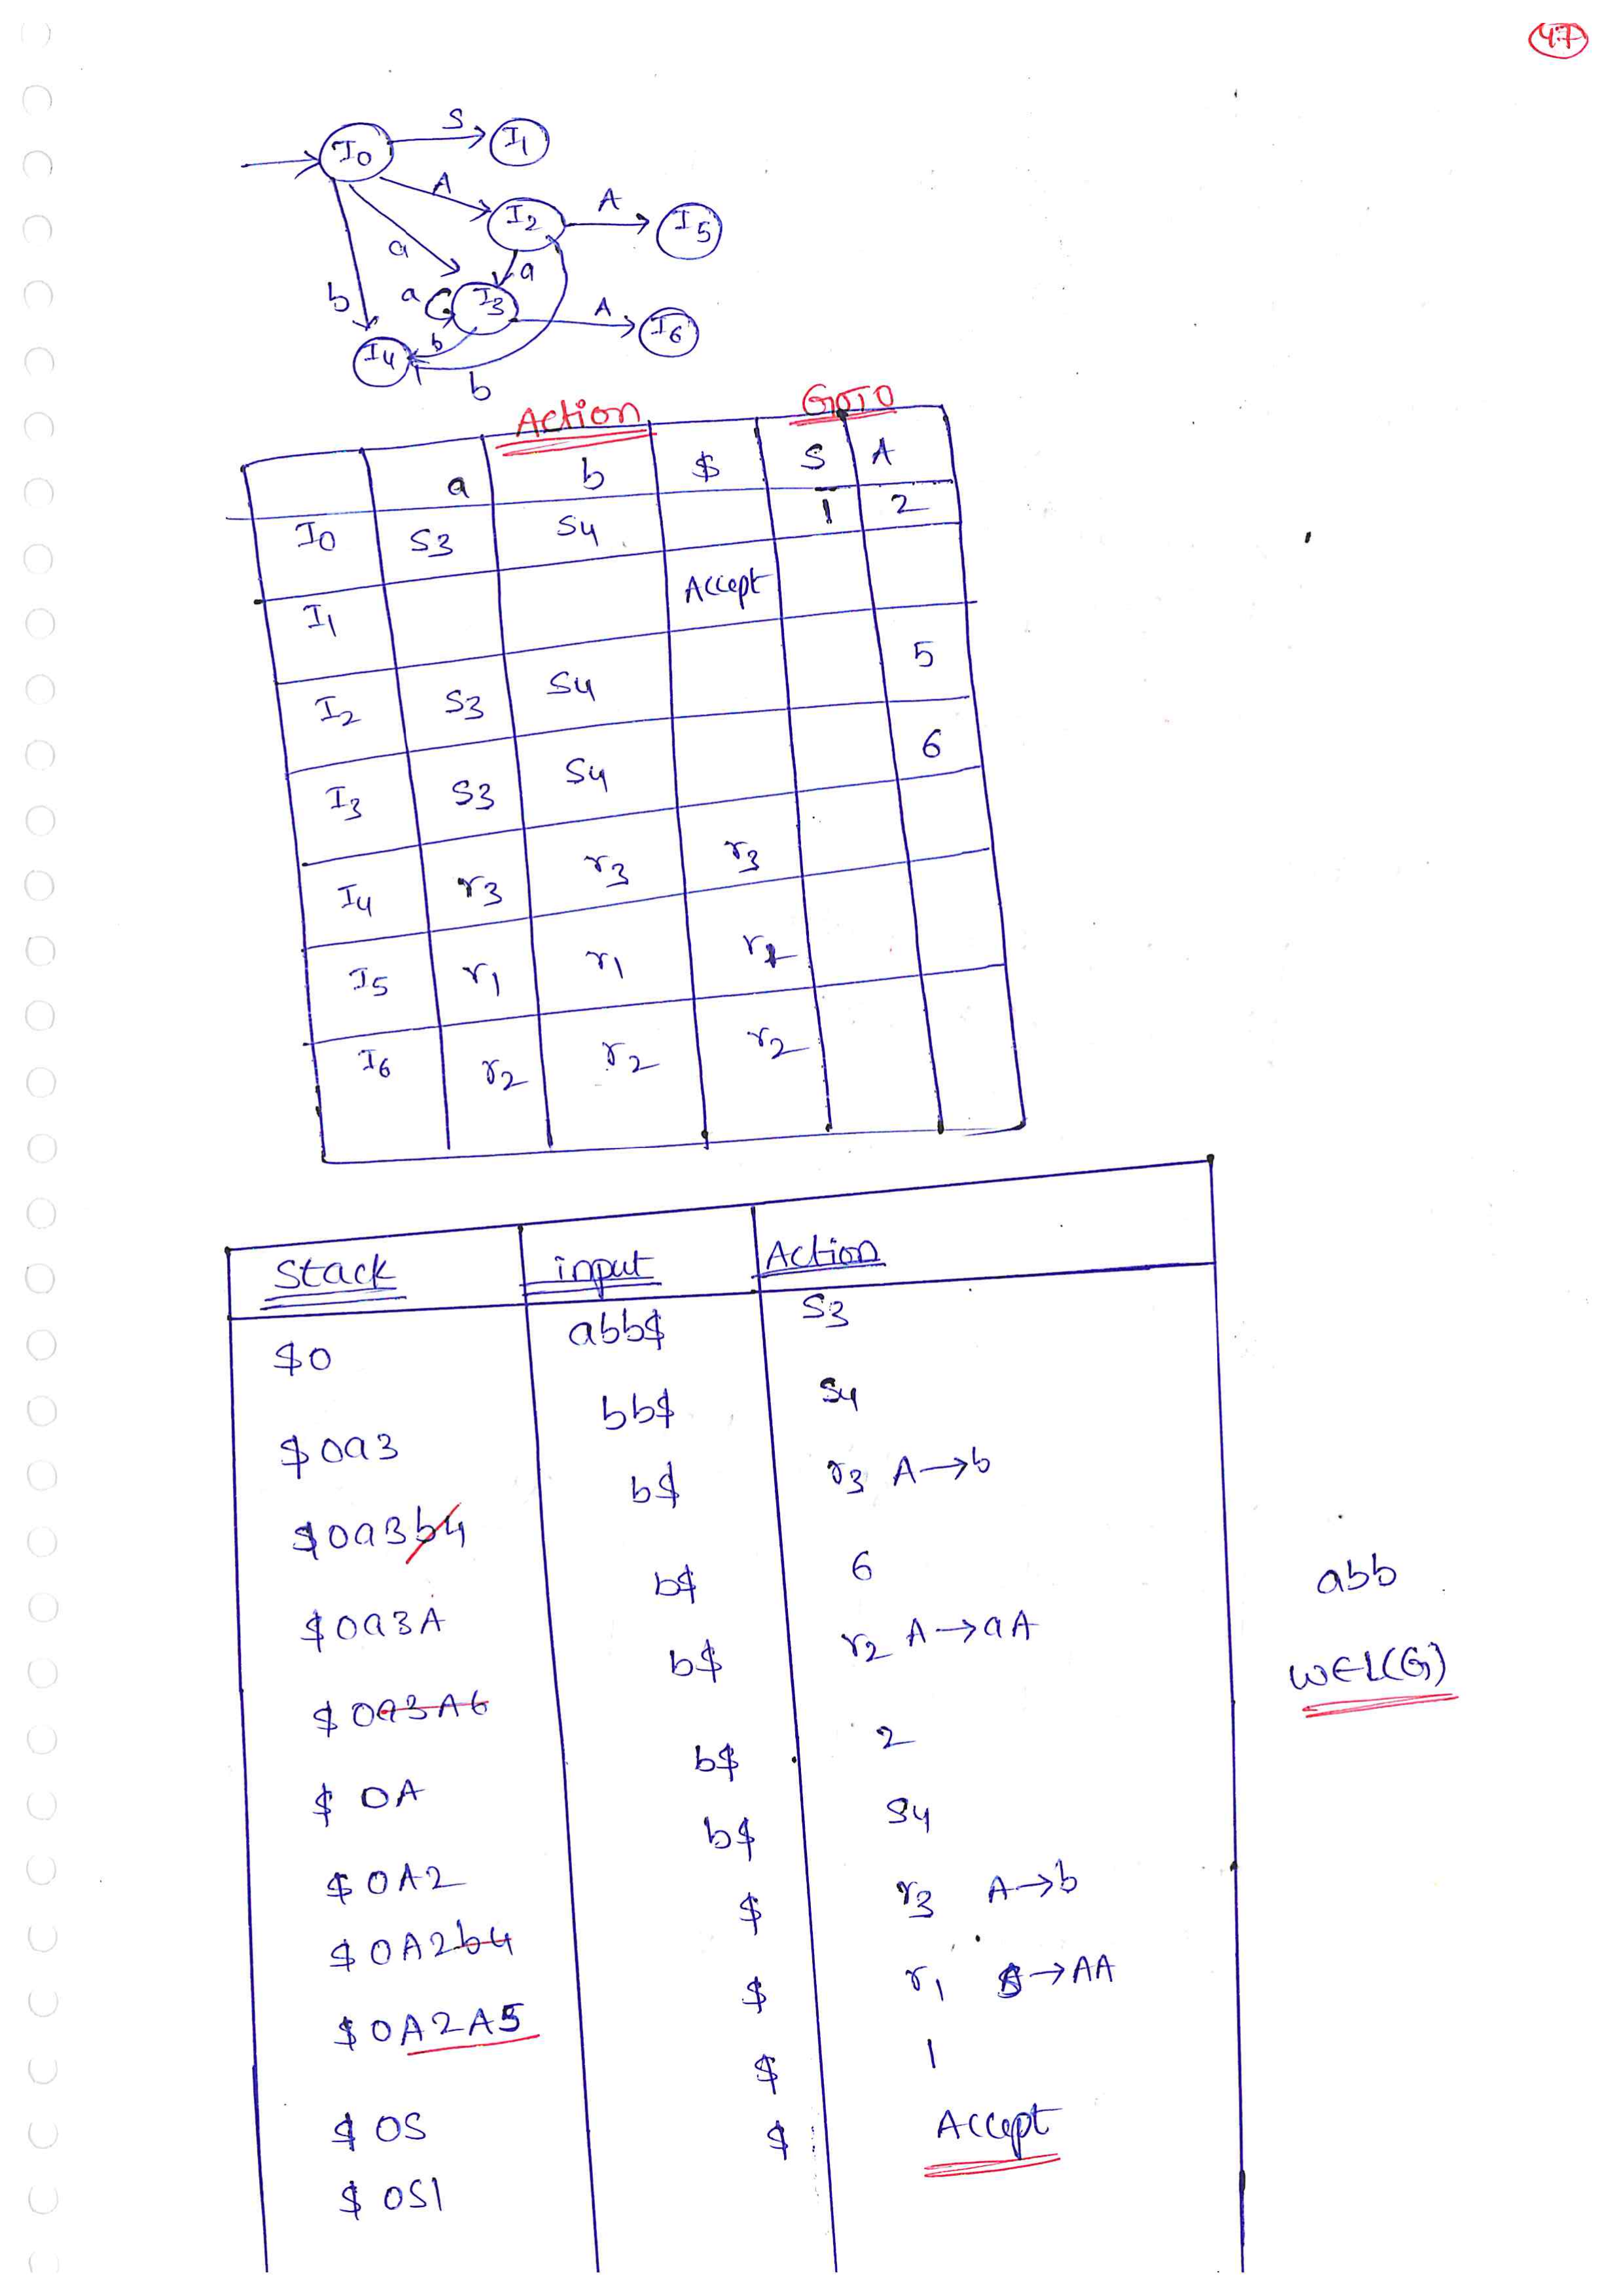 47
S
I0 I1
A
I2 A I5
a
a
b a I3 A I6
I4 b
b
Action GOTO
a b $ S A
I0 S3 S4 1 2
I1 Accept
I2 S3 S4 5
I3 S3 S4 6
I4 r3 r3 r3
I5 r1 r1 r1
I6 r2 r2 r2
Stack input Action
$0 abb$ S3
$0a3 bb$ S4
$0a3b4 b$ r3 A→b
$0a3A b$ 6
$0a3A6 b$ r2 A→aA
$0A b$ 2
$0A2 b$ S4
$0A2b4 $ r3 A→b
$0A2A5 $ r1 S→AA
$0S $ 1
$0S1 $ Accept
abb
W∈L(G)